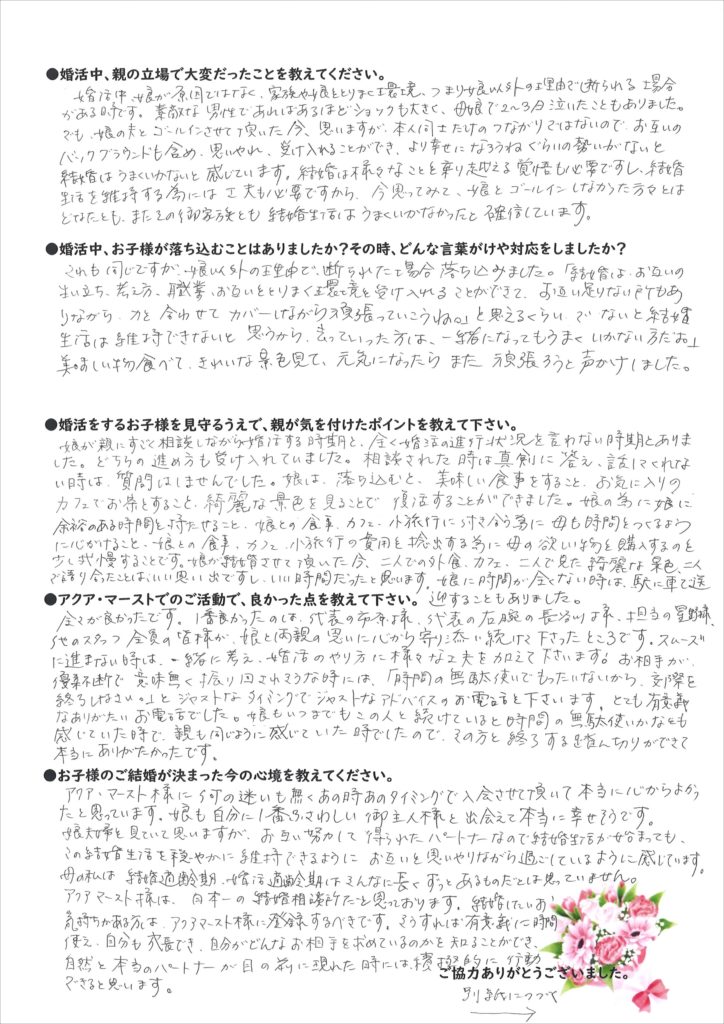 ●婚活中、親の立場で大変だったことを教えてください。
婚活中、娘が原因ではなく、家族や娘をとりまく環境、つまり娘以外の理由で断られる場合
がある時です。素敵な男性であればあるほどショックも大きく、母娘で2～3日泣いたこともありました。
でも、娘の夫とゴールインさせて頂いた今、思いますが、本人同士だけのつながりではないので、お互いの
バックグラウンドも含め、思いやれ、受け入れることができ、より幸せになろうねぐらいの勢いがないと
結婚はうまくいかないと感じています。結婚は様々なことを乗り越える覚悟も必要ですし、結婚
生活を維持する為には工夫も必要ですから、今思ってみて、娘とゴールインしなかった方々とは
どなたとも、またその御家族とも結婚生活はうまくいかなかったと確信しています。
●婚活中、お子様が落ち込むことはありましたか？その時、どんな言葉がけや対応をしましたか？
これも同じですが、娘以外の理由で、断られた場合落ち込みました。「結婚は、お互いの
生い立ち、考え方、職業、お互いをとりまく環境を受け入れることができて、お互い足りない所もあ
りながら、力を合わせてカバーしながら頑張っていこうね。」と思えるくらいでないと結婚
生活は維持できないと思うから、去っていった方は、一緒になってもうまくいかない方だお。」
美味しい物食べて、きれいな景色見て、元気になったらまた頑張ろうと声かけしました。
●婚活をするお子様を見守るうえで、親が気を付けたポイントを教えて下さい。
娘が親にすごく相談しながら婚活する時期と、全く婚活の進行状況を言わない時期とありま
した。どちらの進め方も受け入れていました。相談された時は真剣に答え、話してくれな
い時は、質問はしませんでした。娘は、落ち込むと、美味しい食事をすること、お気に入りの
カフェでお茶をすること、綺麗な景色を見ることで復活することができました。娘の為に娘に
余裕のある時間を持たせること、娘との食事、カフェ、小旅行に付き合う為に母も時間をつくるよう
に心がけること、娘との食事、カフェ、小旅行の費用を捻出する為に母の欲しい物を購入するのを
少し我慢することです。娘が結婚させて頂いた今、二人での外食、カフェ、二人で見た綺麗な景色、二人
で語り合ったことは、いい思い出ですし、いい時間だったと思います。娘に時間が全くない時は、駅に車で送
迎することもありました。
●アクア・マーストでのご活動で、良かった点を教えて下さい。
全てが良かったです。1番良かったのは、代表の様、代表の右腕の長谷川様、担当の星野様、
他のスタッフ全員の皆様が、娘と両親の思いに心から寄り添い続けて下さったところです。スムーズ
に進まない時は、一緒に考え、婚活のやり方に様々な工夫を加えて下さいます。お相手が、
優柔不断で意味無く振り回されそうな時には、「時間の無駄使いでもったいないから、交際を
終了しなさい。」とジャストなタイミングでジャストなアドバイスのお電話を下さいます。とても有意義
なありがたいお電話でした。娘もいつまでもこの人と続けていると時間の無駄使いかなとも
感じていた時で、親も同じように感じていた時でしたので、その方と終了する踏ん切りができて
本当にありがたかったです。
●お子様のご結婚が決まった今の心境を教えてください。
アクア・マースト様に何の迷いも無くあの時あのタイミングで入会させて頂いて本当に心からよかっ
たと思っています。娘も自分に1番ふさわしい御主人様と出会えて本当に幸せそうです。
娘夫婦を見ていて思いますが、お互い努力して得られたパートナーなので結婚生活が始まっても、
この結婚生活を穏やかに維持できるようにお互いを思いやりながら過ごしているように感じています。
母の私は結婚適齢期、婚活適齢期はそんなに長くずっとあるものだとは思っていません。
アクアマースト様は、日本一の結婚相談所だと思っております。結婚したいお
気持ちがある方は、アクアマースト様に登録するべきです。そうすれば有意義に時間
使え、自分も成長でき、自分がどんなお相手を求めているのかを知ることができ、
自然と本当のパートナーが目の前に現れた時には、積極的に行動
できると思います。
ご協力ありがとうございました。
別紙につづく
→